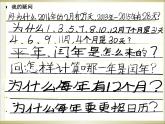 我的疑问
为什么2014年的2月有29天,2013年~2015年28天?
为什么1,3,5,7,8,10,12月是31天
4,6,9,11月是30天?
平年、闰年是怎么来的?
问怎样计算哪一年是闰年?
为什么每年有12个月?
为什么每年要更换日历?